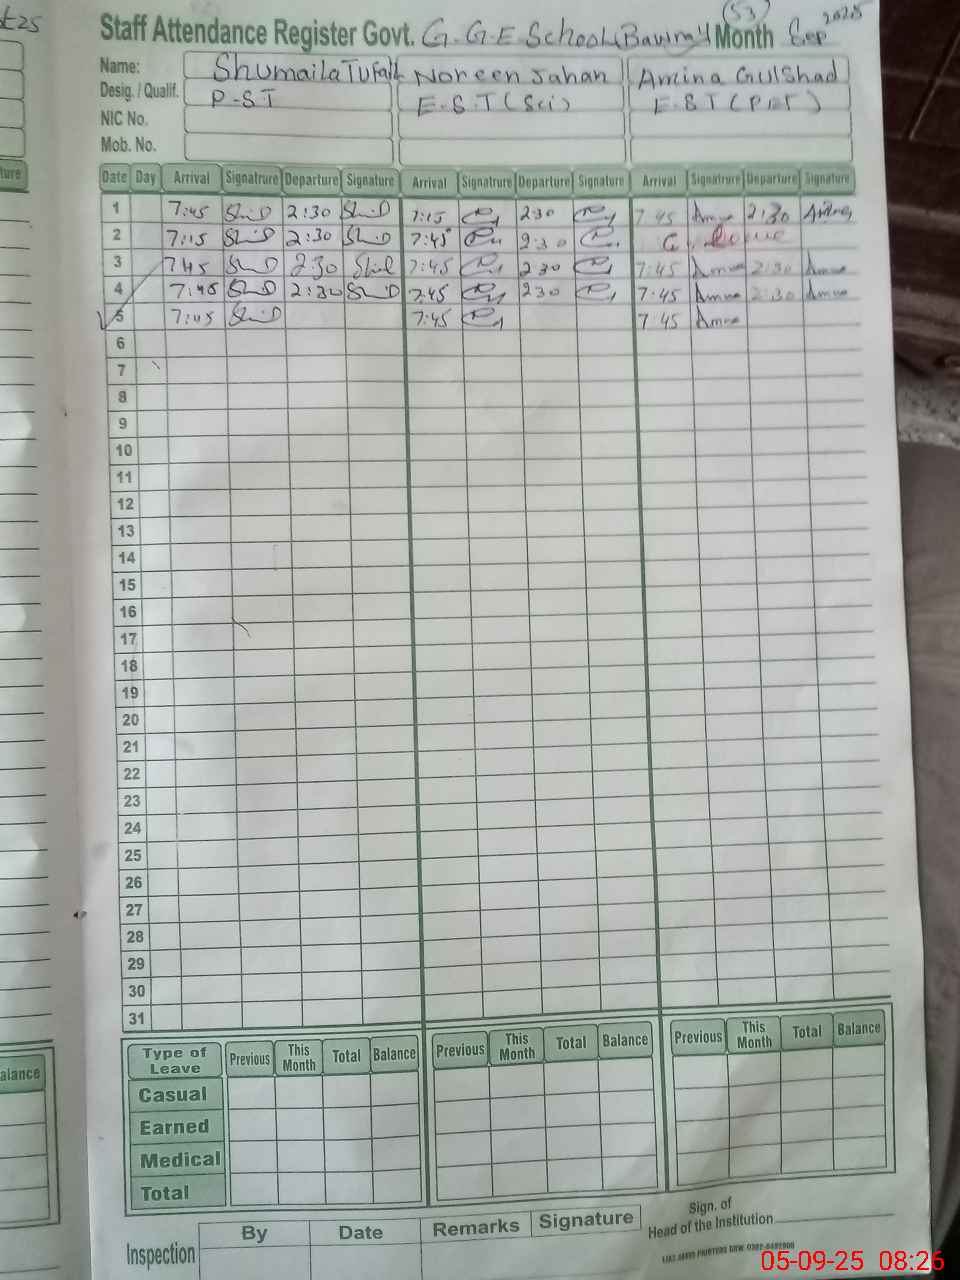 t25
53
2025
Staff Attendance Register Govt. G.G.E School (Bawray) Month Sep
Name: Shumaila Tufail Noreen Jahan Amina Gulshad
Desig. / Qualif. P-S-T E.S.T (Sci) E.S.T (PET)
NIC No.
Mob. No.
ture
Date Day Arrival Signatrure Departure Signature Arrival Signatrure Departure Signature Arrival Signatrure Departure Signature
1 7:45 2:30 7:15 2:30 7:45 Amna 2:30 Amna
2 7:15 2:30 7:45 2:30
3 7:45 2:30 7:45 2:30 7:45 Amna 2:30 Amna
4 7:45 2:30 7:45 2:30 7:45 Amna 2:30 Amna
5 7:45 7:45 7:45 Amna
6
7
8
9
10
11
12
13
14
15
16
17
18
19
20
21
22
23
24
25
26
27
28
29
30
31
alance
Type of Leave Previous This Month Total Balance Previous This Month Total Balance Previous This Month Total Balance
Casual
Earned
Medical
Total
Inspection By Date Remarks Signature
Sign. of
Head of the Institution
05-09-25 08:26